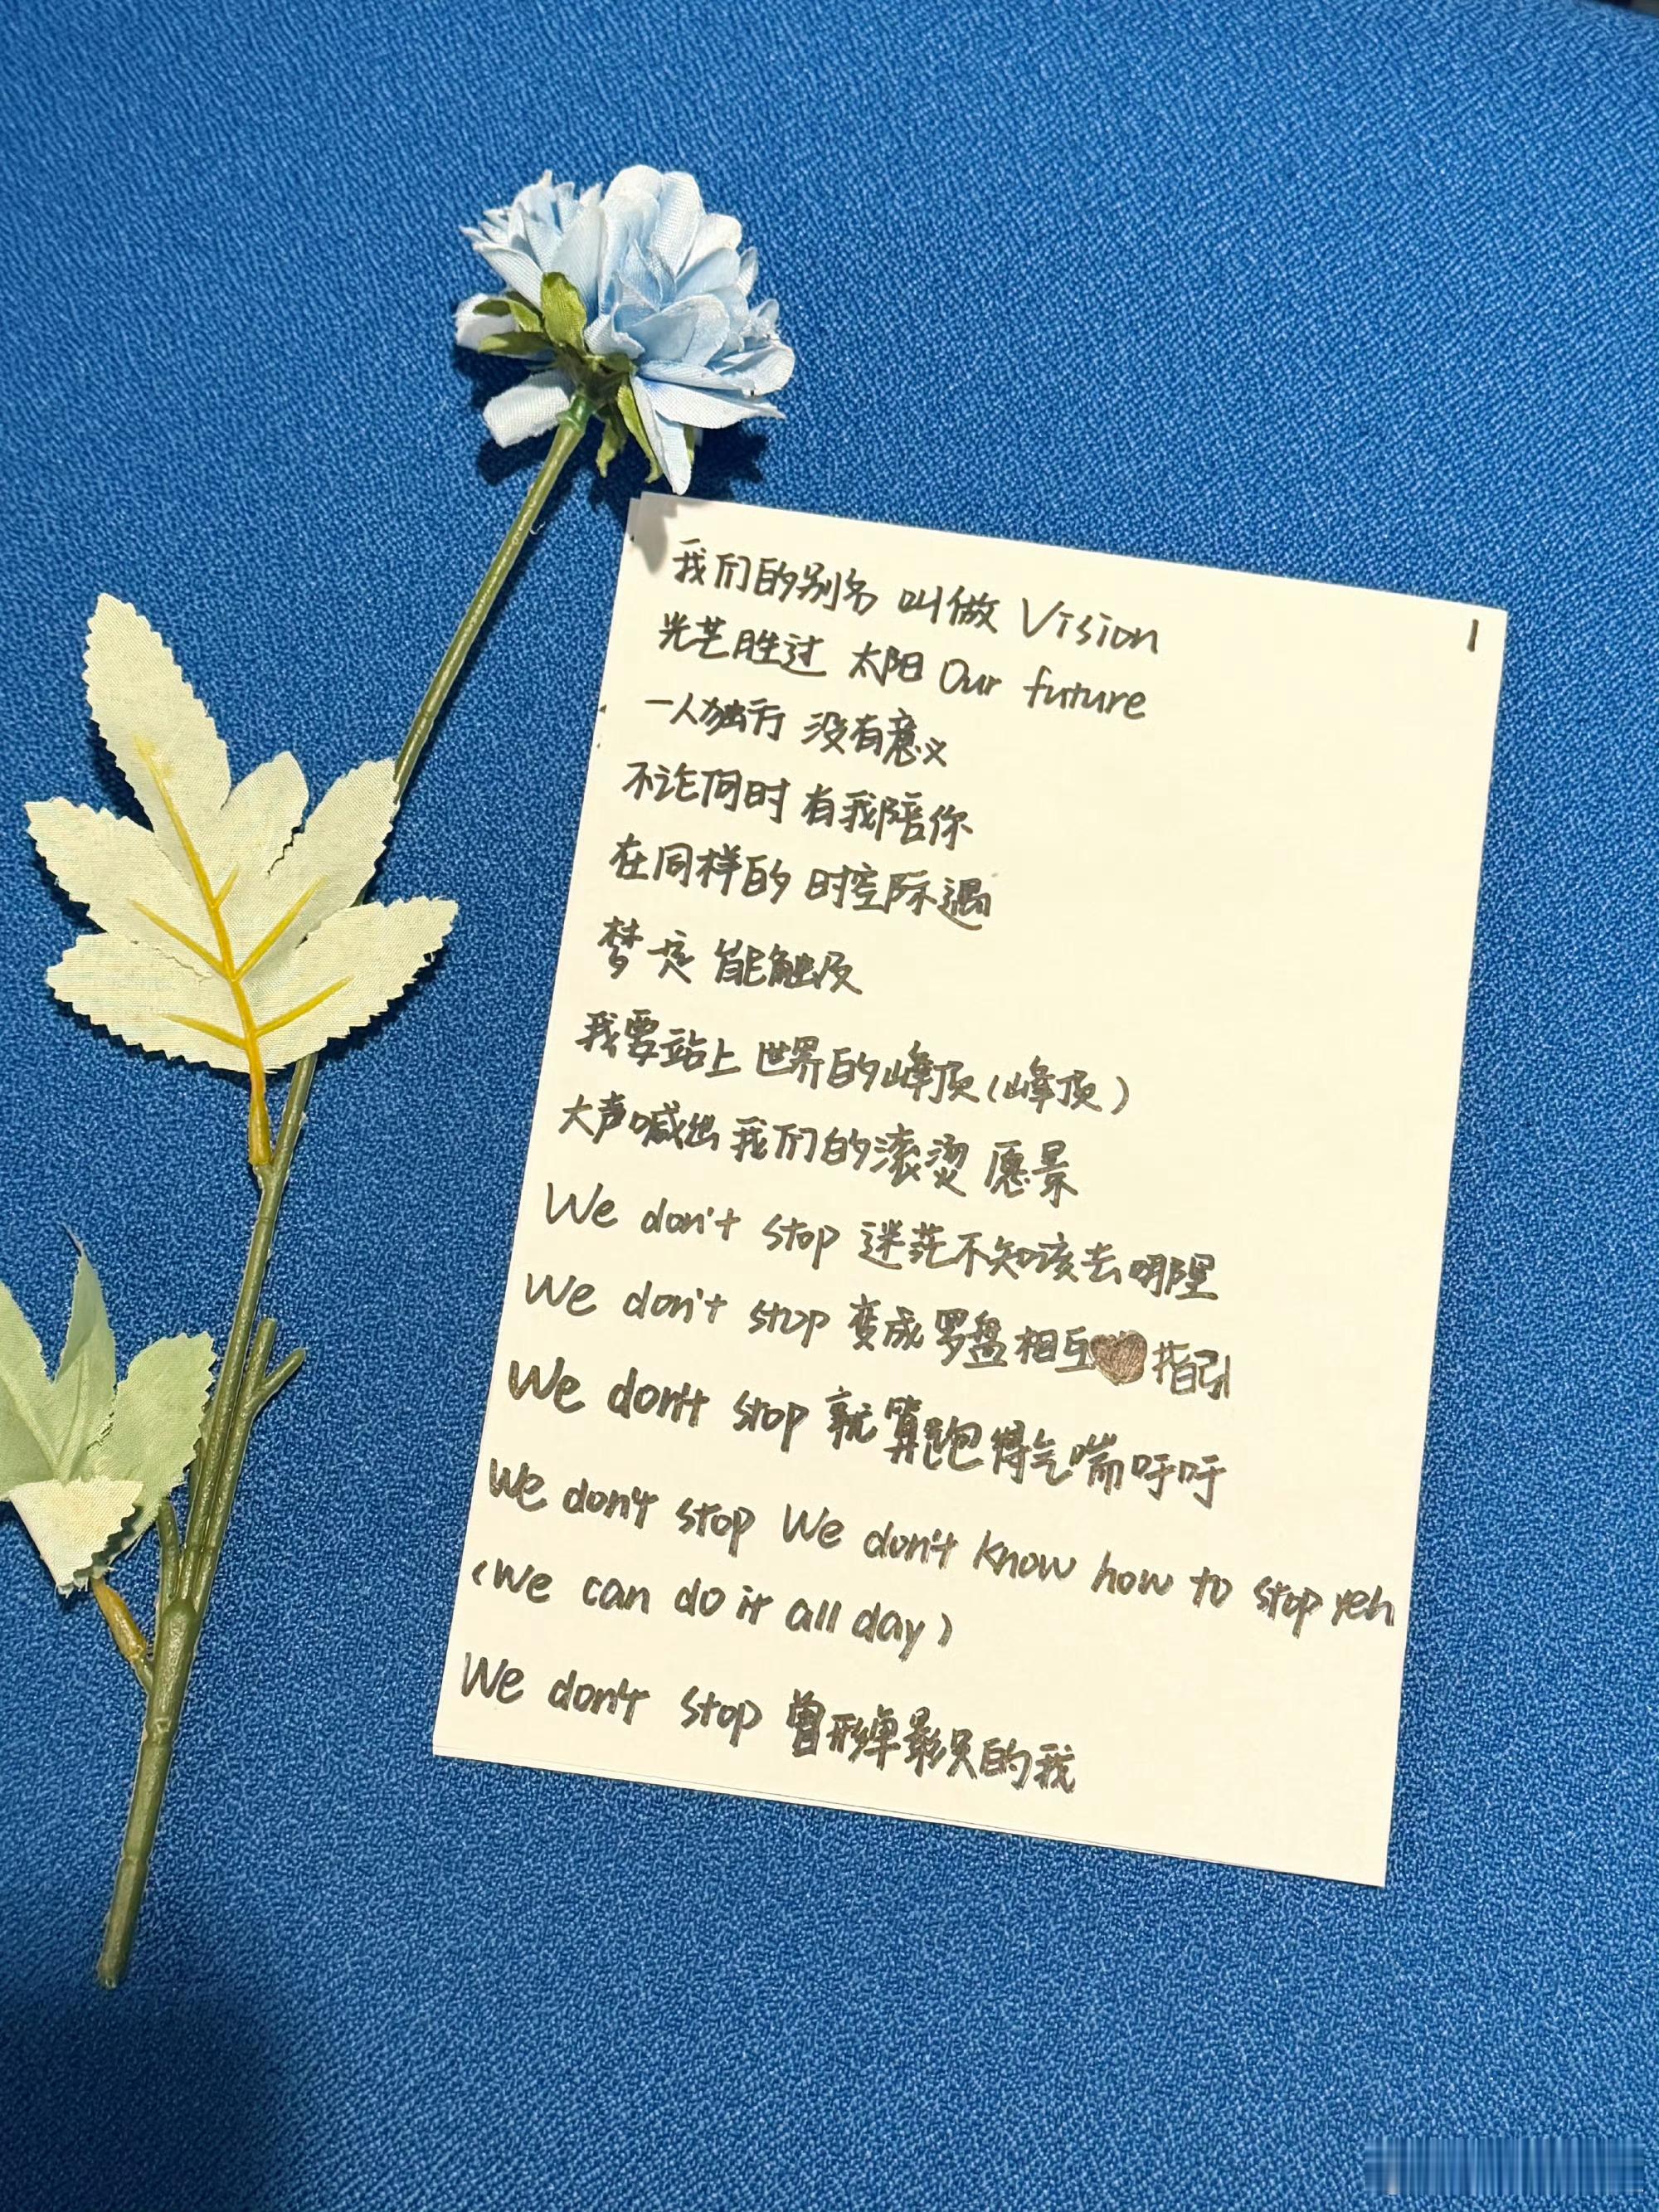 1
我们的别名 叫做 Vision
光芒胜过 太阳 Our future
一人独行 没有意义
不论何时 有我陪你
在同样的 时空际遇
梦 定 能触及
我要站上 世界的峰顶(峰顶)
大声喊出 我们的滚烫 愿景
We don't stop 迷茫不知该去哪里
We don't stop 变成罗盘相互 指引
We don't stop 就算跑得气喘吁吁
We don't stop We don't know how to stop yeh
(We can do it all day)
We don't stop 曾形单影只的我